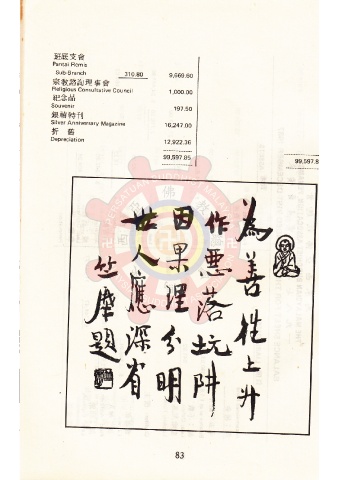 班底支會
Pantai Remis
Sub-Branch 310.80 9,669.60
宗教諮詢理事會
Religious Consultative Council 1,000.00
紀念品
Souvenir 197.50
銀禧特刊
Silver Anniversary Magazine 16,247.00
折舊
Depreciation 12,922.36
99,597.85 99,597.8
為善徃上升
作惡落坑阱
因果理分明
世人應深省
竺摩題
83